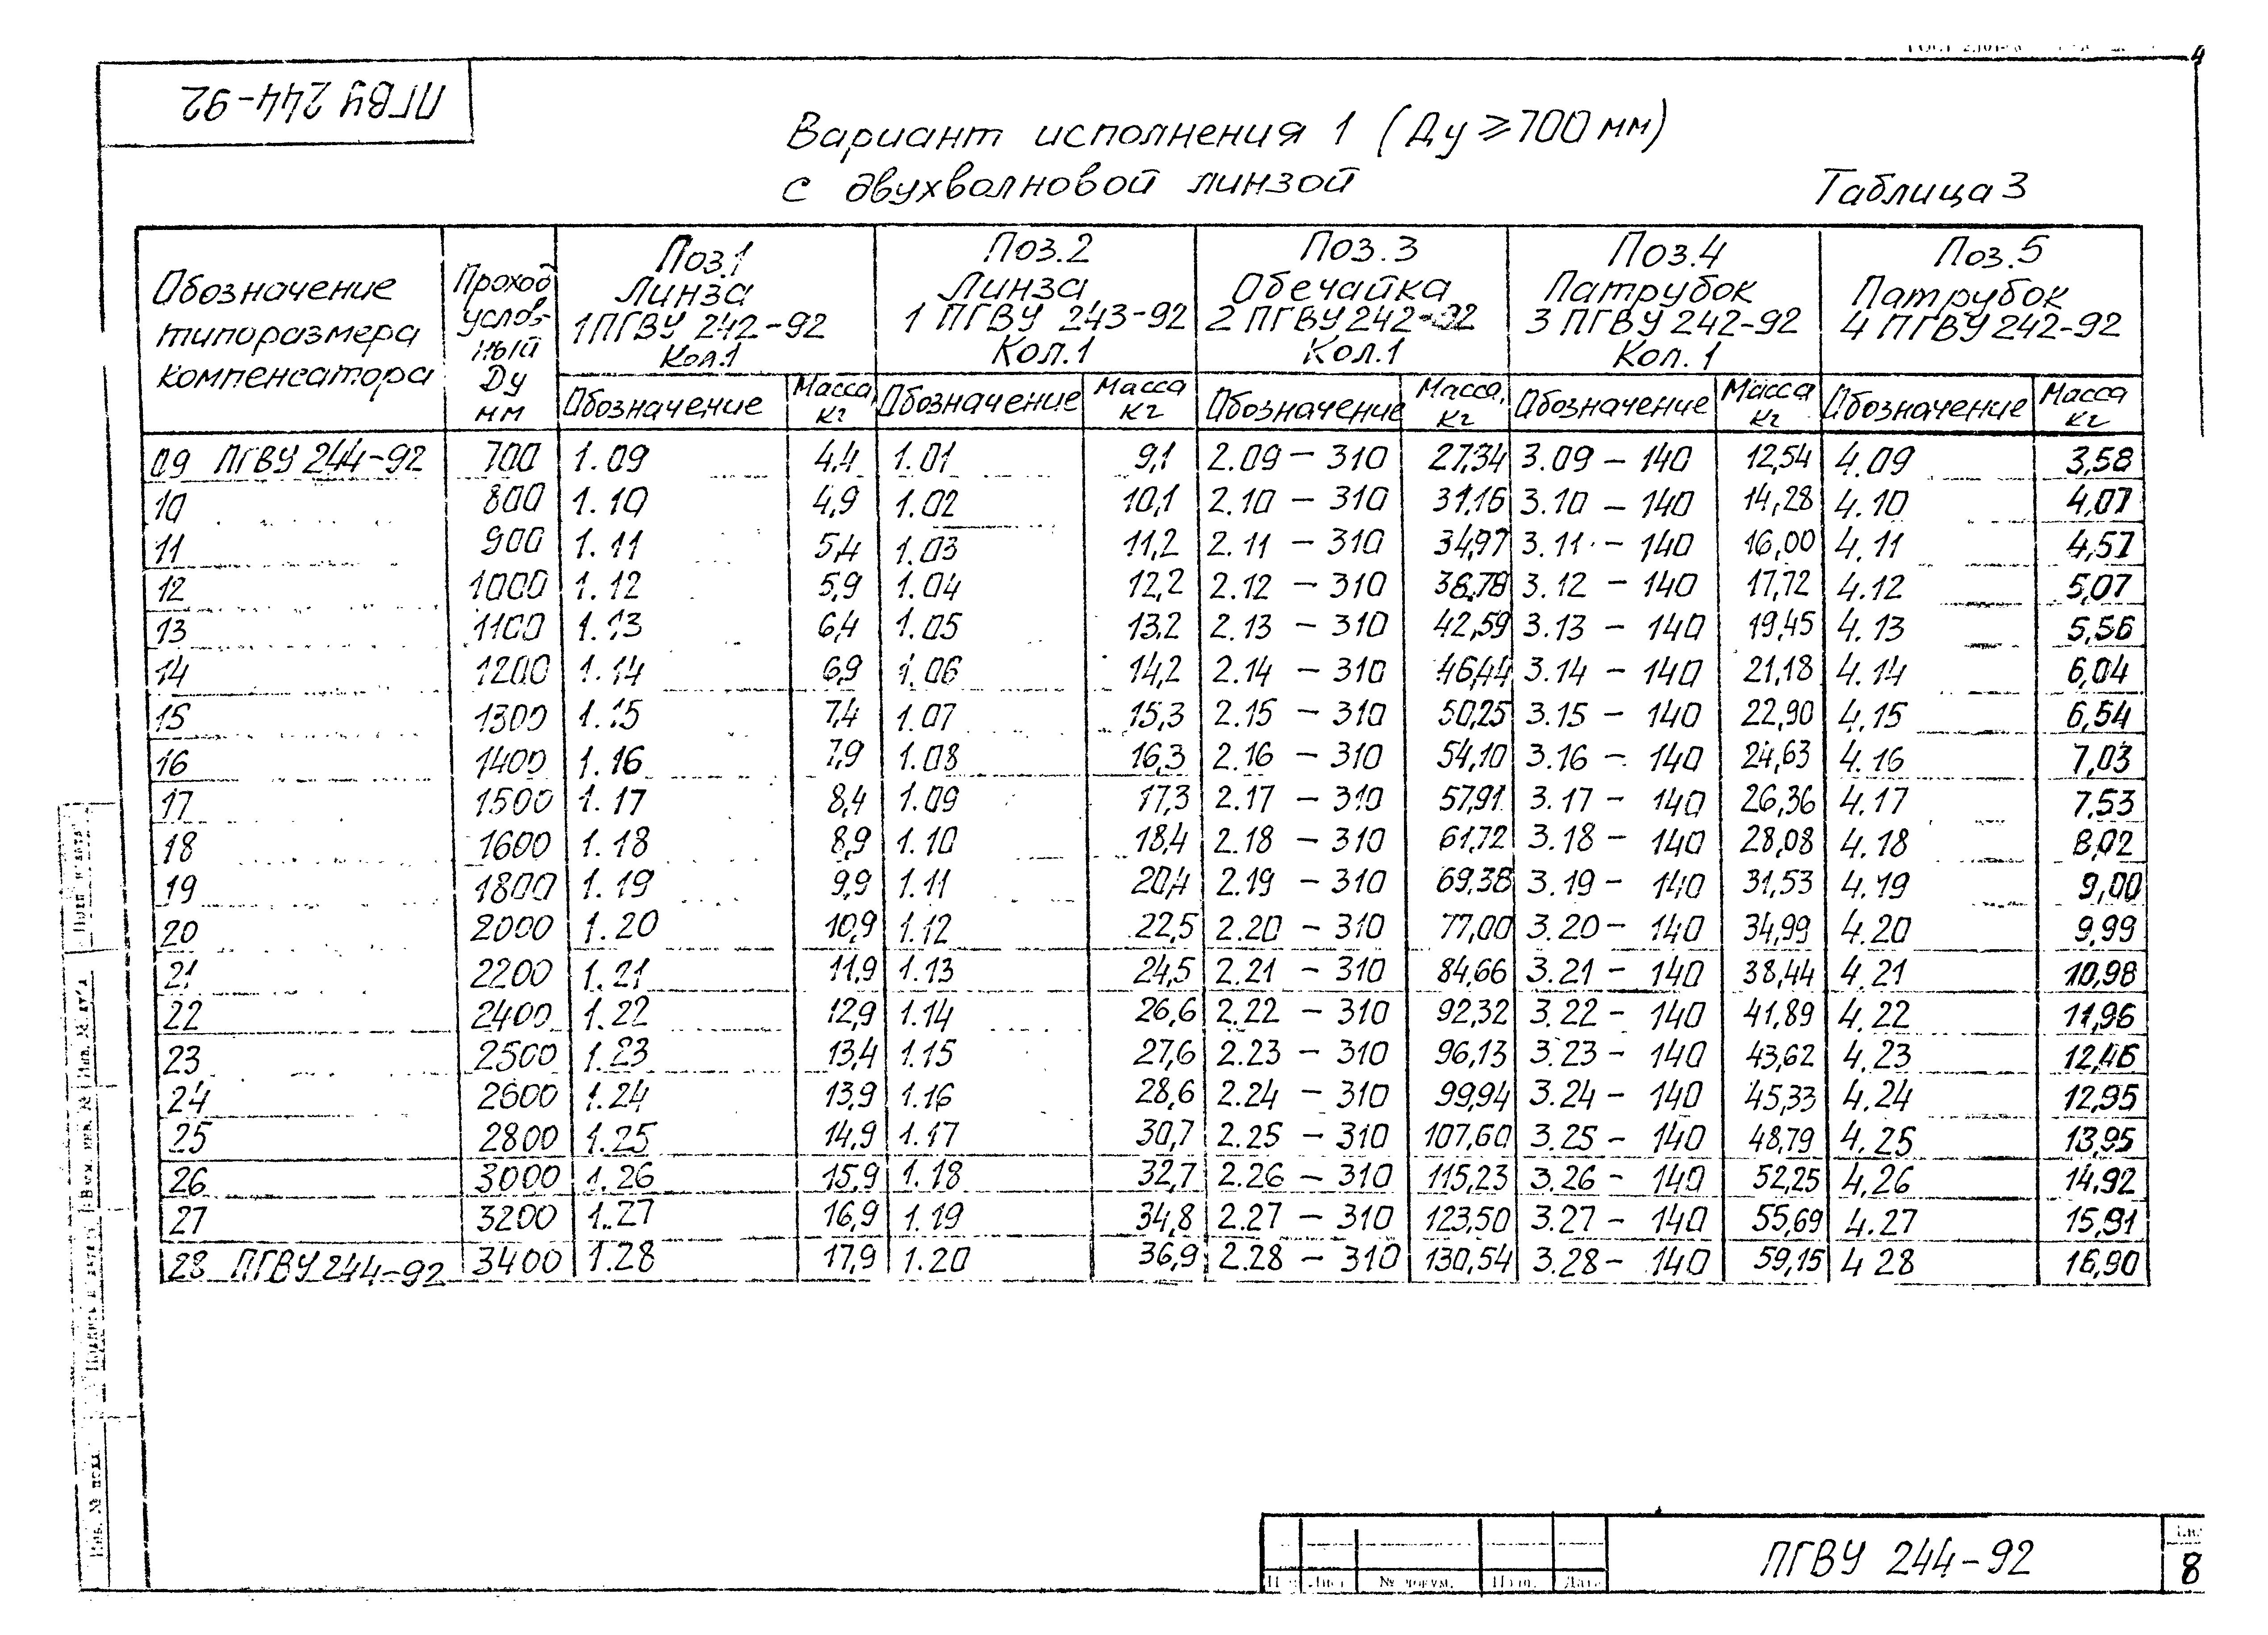 ПГВУ 244-92
Вариант исполнения 1 (Ду ≥ 700 мм)
с двухволновой линзой
Таблица 3
Обозначение типоразмера компенсатора
Проход условный Ду мм
Поз.1 Линза 1ПГВУ 242-92 Кол.1
Поз.2 Линза 1 ПГВУ 243-92 Кол.1
Поз.3 Обечайка 2 ПГВУ 242-92 Кол.1
Поз.4 Патрубок 3 ПГВУ 242-92 Кол.1
Поз.5 Патрубок 4 ПГВУ 242-92
Обозначение Масса, кг Обозначение Масса кг Обозначение Масса, кг Обозначение Масса кг Обозначение Масса кг
09 ПГВУ 244-92 700 1.09 4,4 1.01 9,1 2.09 - 310 27,34 3.09 - 140 12,54 4.09 3,58
10 800 1.10 4,9 1.02 10,1 2.10 - 310 31,16 3.10 - 140 14,28 4.10 4,07
11 900 1.11 5,4 1.03 11,2 2.11 - 310 34,97 3.11 - 140 16,00 4.11 4,57
12 1000 1.12 5,9 1.04 12,2 2.12 - 310 38,78 3.12 - 140 17,72 4.12 5,07
13 1100 1.13 6,4 1.05 13,2 2.13 - 310 42,59 3.13 - 140 19,45 4.13 5,56
14 1200 1.14 6,9 1.06 14,2 2.14 - 310 46,44 3.14 - 140 21,18 4.14 6,04
15 1300 1.15 7,4 1.07 15,3 2.15 - 310 50,25 3.15 - 140 22,90 4.15 6,54
16 1400 1.16 7,9 1.08 16,3 2.16 - 310 54,10 3.16 - 140 24,63 4.16 7,03
17 1500 1.17 8,4 1.09 17,3 2.17 - 310 57,91 3.17 - 140 26,36 4.17 7,53
18 1600 1.18 8,9 1.10 18,4 2.18 - 310 61,72 3.18 - 140 28,08 4.18 8,02
19 1800 1.19 9,9 1.11 20,4 2.19 - 310 69,38 3.19 - 140 31,53 4.19 9,00
20 2000 1.20 10,9 1.12 22,5 2.20 - 310 77,00 3.20 - 140 34,99 4.20 9,99
21 2200 1.21 11,9 1.13 24,5 2.21 - 310 84,66 3.21 - 140 38,44 4.21 10,98
22 2400 1.22 12,9 1.14 26,6 2.22 - 310 92,32 3.22 - 140 41,89 4.22 11,96
23 2500 1.23 13,4 1.15 27,6 2.23 - 310 96,13 3.23 - 140 43,62 4.23 12,46
24 2600 1.24 13,9 1.16 28,6 2.24 - 310 99,94 3.24 - 140 45,33 4.24 12,95
25 2800 1.25 14,9 1.17 30,7 2.25 - 310 107,60 3.25 - 140 48,79 4.25 13,95
26 3000 1.26 15,9 1.18 32,7 2.26 - 310 115,23 3.26 - 140 52,25 4.26 14,92
27 3200 1.27 16,9 1.19 34,8 2.27 - 310 123,50 3.27 - 140 55,69 4.27 15,91
28 ПГВУ 244-92 3400 1.28 17,9 1.20 36,9 2.28 - 310 130,54 3.28 - 140 59,15 4 28 16,90
ПГВУ 244-92
8